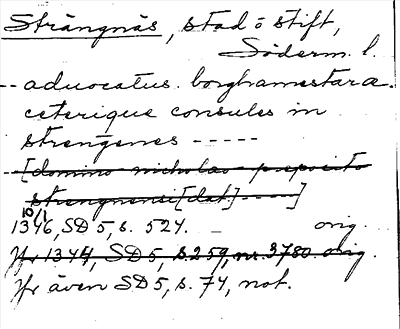 Strängnäs, stad o stift,
Söderm. l.
-- aduocatus. borghamestara.
ceterique consules in
strengenes -----
[domino nicholao preposito
strengnensi [dat] ----]
10/1
1346, SD 5, s. 524. - orig.
Jfr 1344, SD 5, s. 259, nr. 3780 orig.
Jfr även SD 5, s. 74, not.